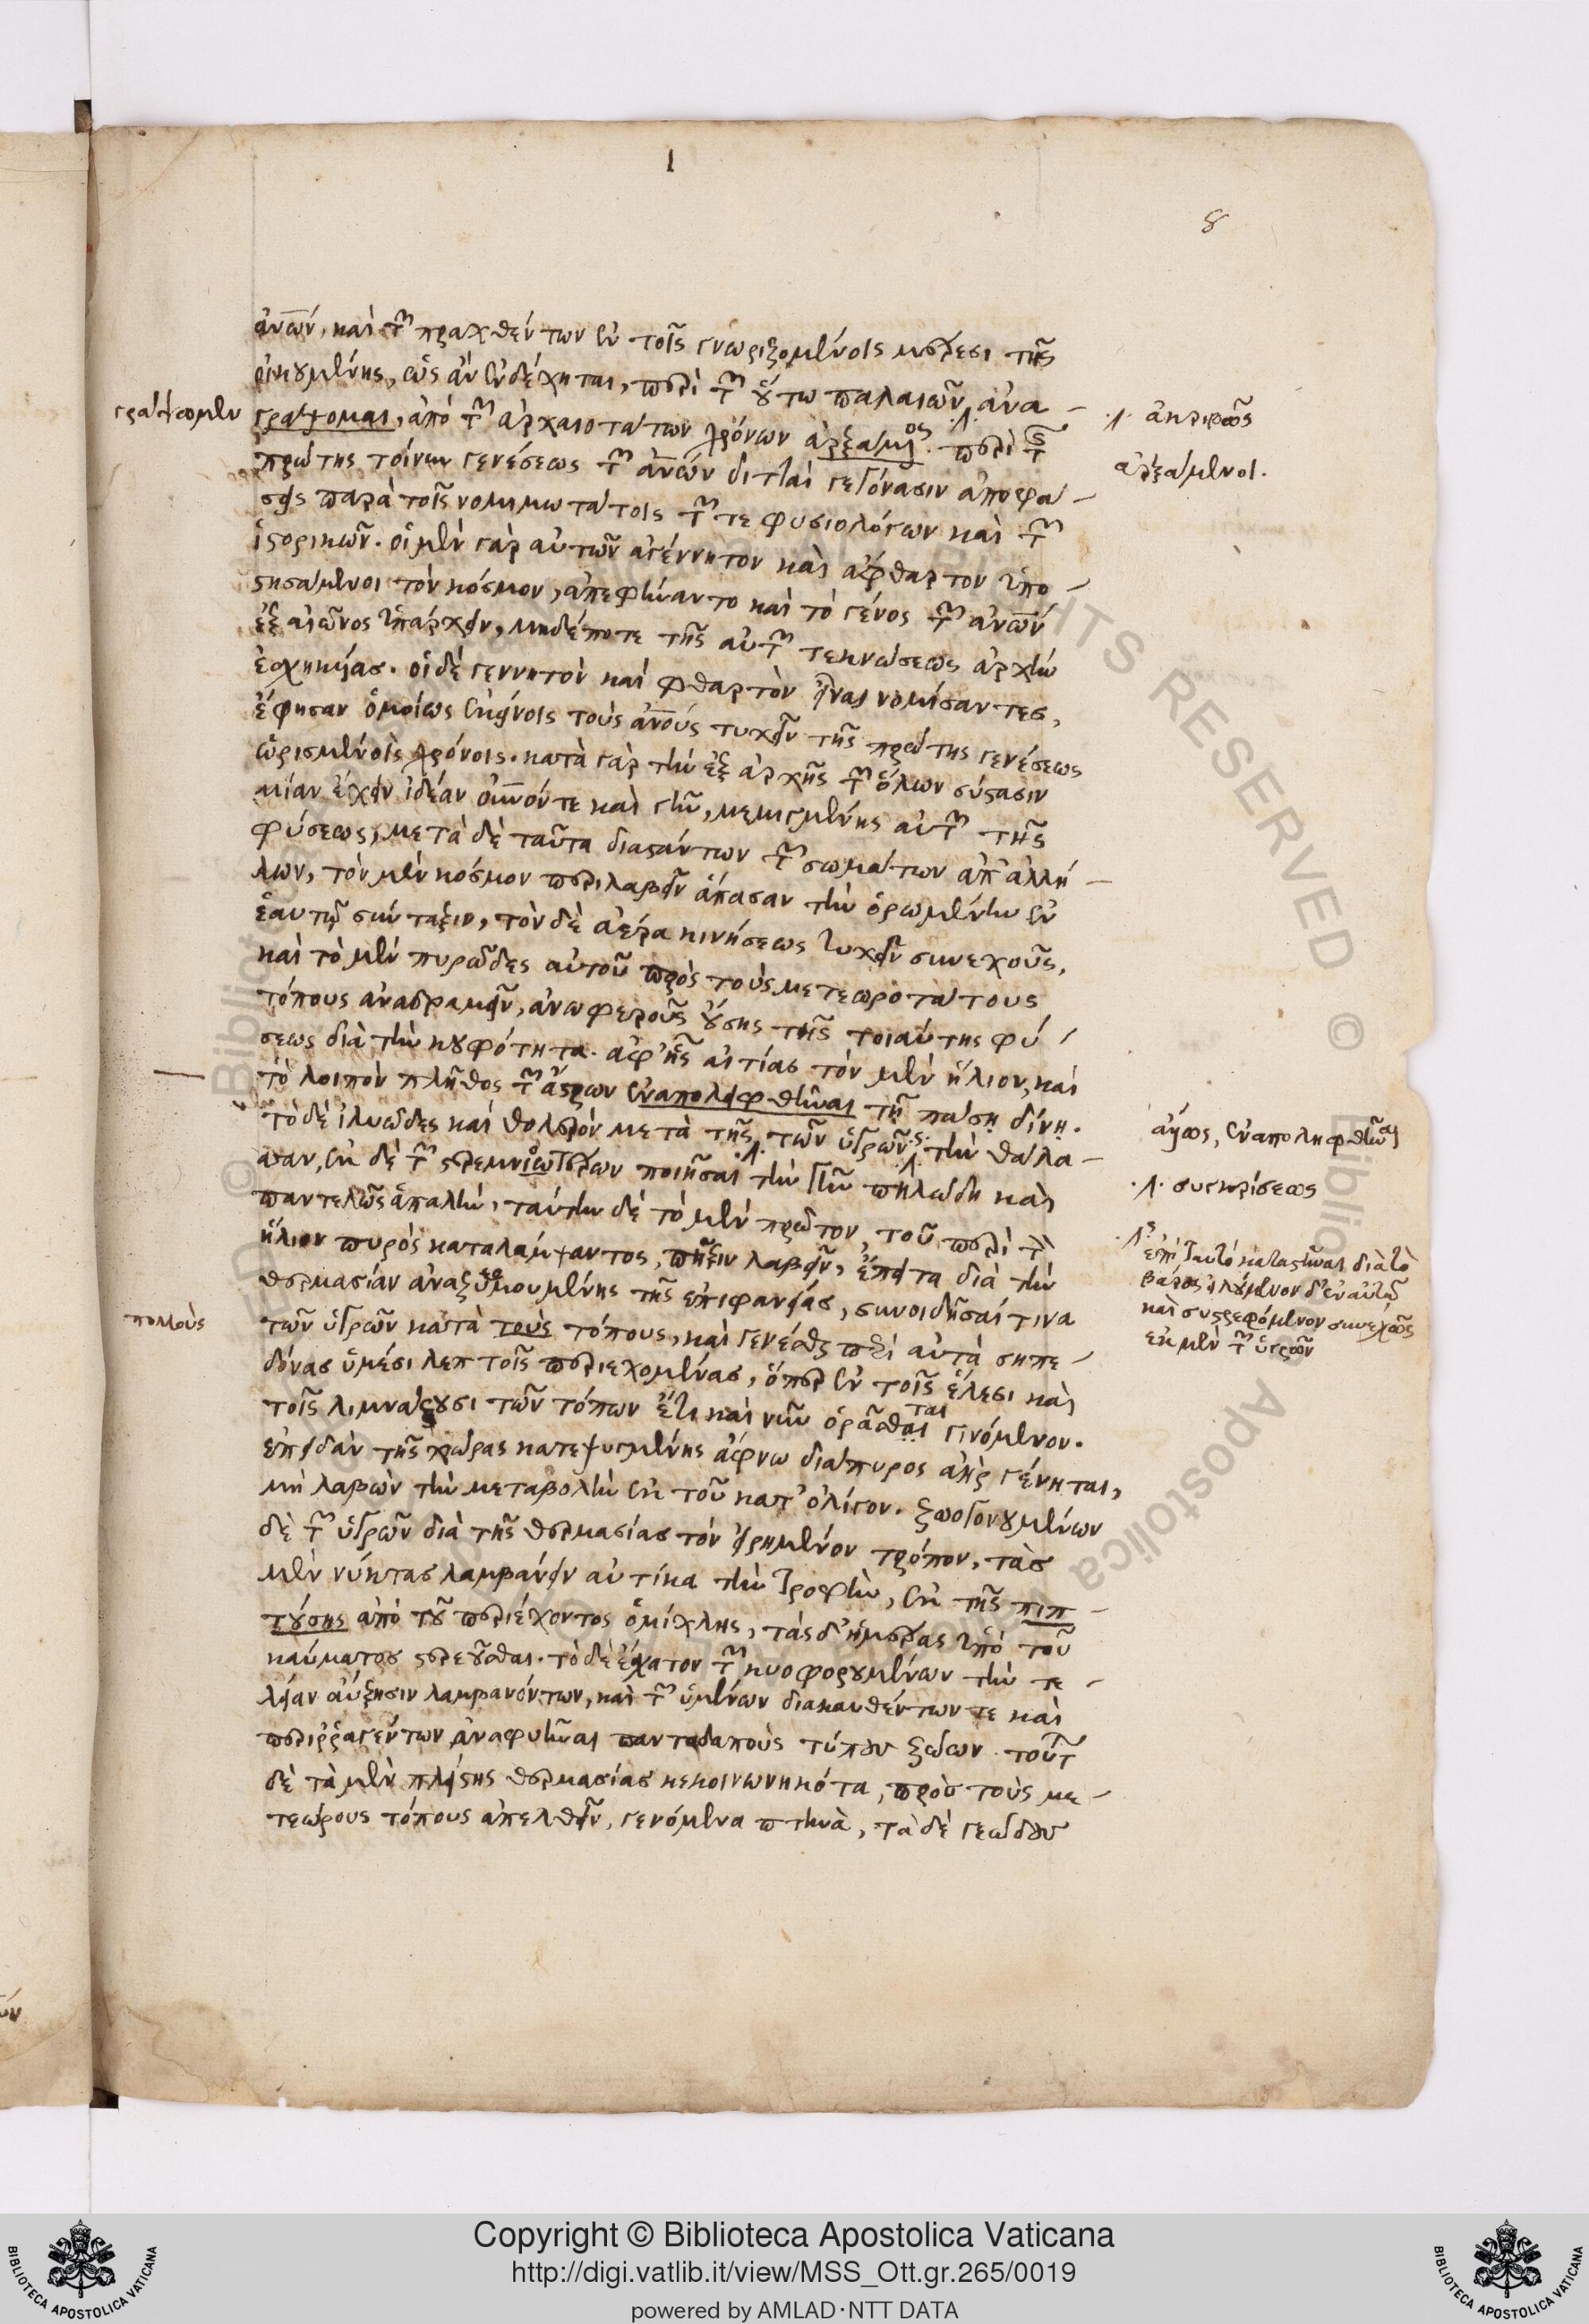 1
8
ἀνῶν, καὶ τῶν πραχθέντων ἐν τοῖς γνωριζομένοις μέρεσι τῆς
οἰκουμένης, ὡς ἂν ἐνδέχηται, περὶ τῶν οὕτω παλαιῶν, ἀνα-
γράψομαι, ἀπὸ τῶν ἀρχαιοτάτων χρόνων ἀρξάμενος. περὶ τῆς
πρώτης τοίνυν γενέσεως τῶν ἀνῶν διτταὶ γεγόνασιν ἀποφά-
σεις παρὰ τοῖς νομιμωτάτοις τῶν τε φυσιολόγων καὶ τῶν
ἱστορικῶν. οἱ μὲν γὰρ αὐτῶν ἀγέννητον καὶ ἄφθαρτον ὑπο-
στησάμενοι τὸν κόσμον, ἀπεφήναντο καὶ τὸ γένος τῶν ἀνῶν
ἐξ αἰῶνος ὑπάρχειν, μηδέποτε τῆς αὐτῶν τεκνώσεως ἀρχὴν
ἐσχηκυίας. οἱ δὲ γεννητὸν καὶ φθαρτὸν εἶναι νομίσαντες,
ἔφησαν ὁμοίως ἐκείνοις τοὺς ἀνους τυχεῖν τῆς πρώτης γενέσεως
ὡρισμένοις χρόνοις. κατὰ γὰρ τὴν ἐξ ἀρχῆς τῶν ὅλων σύστασιν
μίαν ἔχειν ἰδέαν οὐνόν τε καὶ γῆν, μεμιγμένης αὐτῶν τῆς
φύσεως, μετὰ δὲ ταῦτα διαστάντων τῶν σωμάτων ἀπ' ἀλλή-
λων, τὸν μὲν κόσμον περιλαβεῖν ἅπασαν τὴν ὁρωμένην ἐν
ἑαυτῷ σύνταξιν, τὸν δὲ ἀέρα κινήσεως τυχεῖν συνεχοῦς,
καὶ τὸ μὲν πυρῶδες αὐτοῦ πρὸς τοὺς μετεωροτάτους
τόπους ἀναδραμεῖν, ἀνωφεροῦς οὔσης τῆς τοιαύτης φύ-
σεως διὰ τὴν κουφότητα. ἀφ' ἧς αἰτίας τὸν μὲν ἥλιον, καὶ
τὸ λοιπὸν πλῆθος τῶν ἄστρων ἐναποληφθῆναι τῇ πάσῃ δίνῃ.
τὸ δὲ ἰλυῶδες καὶ θολερὸν μετὰ τῆς τῶν ὑγρῶν τὴν θάλα-
τταν, ἐκ δὲ τῶν στερεμνιωτέρων ποιῆσαι τὴν γῆν πηλώδη καὶ
παντελῶς ἁπαλήν, ταύτην δὲ τὸ μὲν πρῶτον, τοῦ περὶ τὸν
ἥλιον πυρὸς καταλάμψαντος, πῆξιν λαβεῖν, ἔπειτα διὰ τὴν
θερμασίαν ἀναζυμουμένης τῆς ἐπιφανείας, συνοιδῆσαί τινα
τῶν ὑγρῶν κατὰ τοὺς τόπους, καὶ γενέσθαι περὶ αὐτὰ σηπε-
δόνας ὑμέσι λεπτοῖς περιεχομένας, ὅπερ ἐν τοῖς ἕλεσι καὶ
τοῖς λιμνάζουσι τῶν τόπων ἔτι καὶ νῦν ὁρᾶσθαι γινόμενον.
ἐπειδὰν τῆς χώρας κατεψυγμένης ἄφνω διάπυρος ἀὴρ γένηται,
μὴ λαβὼν τὴν μεταβολὴν ἐκ τοῦ κατ' ὀλίγον. ζωογονουμένων
δὲ τῶν ὑγρῶν διὰ τῆς θερμασίας τὸν εἰρημένον τρόπον, τὰς
μὲν νύκτας λαμβάνειν αὐτίκα τὴν τροφὴν, ἐκ τῆς πιπ-
τούσης ἀπὸ τοῦ περιέχοντος ὁμίχλης, τὰς δ' ἡμέρας ὑπὸ τοῦ
καύματος στερεοῦσθαι. τὸ δὲ ἔσχατον τῶν κυοφορουμένων τὴν τε-
λείαν αὔξησιν λαμβανόντων, καὶ τῶν ὑμένων διακαυθέντων τε καὶ
περιρραγέντων ἀναφυῆναι παντοδαποὺς τύπους ζώων. τούτων
δὲ τὰ μὲν πλείστης θερμασίας κεκοινωνηκότα, πρὸς τοὺς με-
τεώρους τόπους ἀπελθεῖν, γενόμενα πτηνὰ, τὰ δὲ γεώδους
γράψωμεν
πολλοὺς
ἀκριβῶς
ἀρξάμενοι.
ἄξιος, ἐναποληφθῆναι
συγκρίσεως
ἐπὶ ταυτὸ καταστῆναι διὰ τὸ
βάρος εἰλούμενον δ' ἐν αὑτῷ
καὶ συστρεφόμενον συνεχῶς
ἐκ μὲν τῶν ὑγρῶν
© Biblioteca Apostolica Vaticana
RIGHTS RESERVED
Copyright © Biblioteca Apostolica Vaticana
http://digi.vatlib.it/view/MSS_Ott.gr.265/0019
powered by AMLAD·NTT DATA
BIBLIOTECA APOSTOLICA VATICANA
BIBLIOTECA APOSTOLICA VATICANA